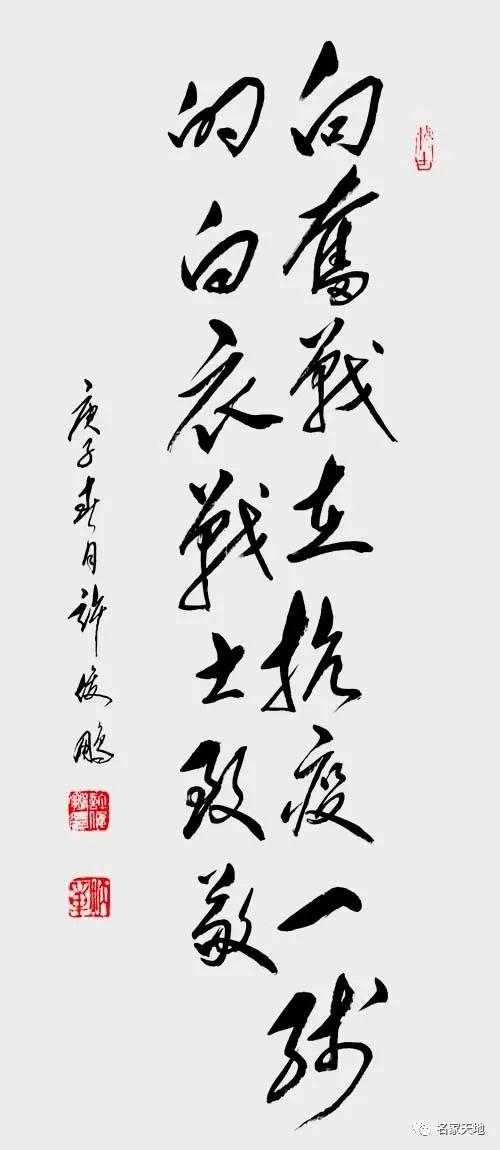 向奮戰在抗疫一线
的白衣戰士致敬
庚子春月許俊鵬
名家天地